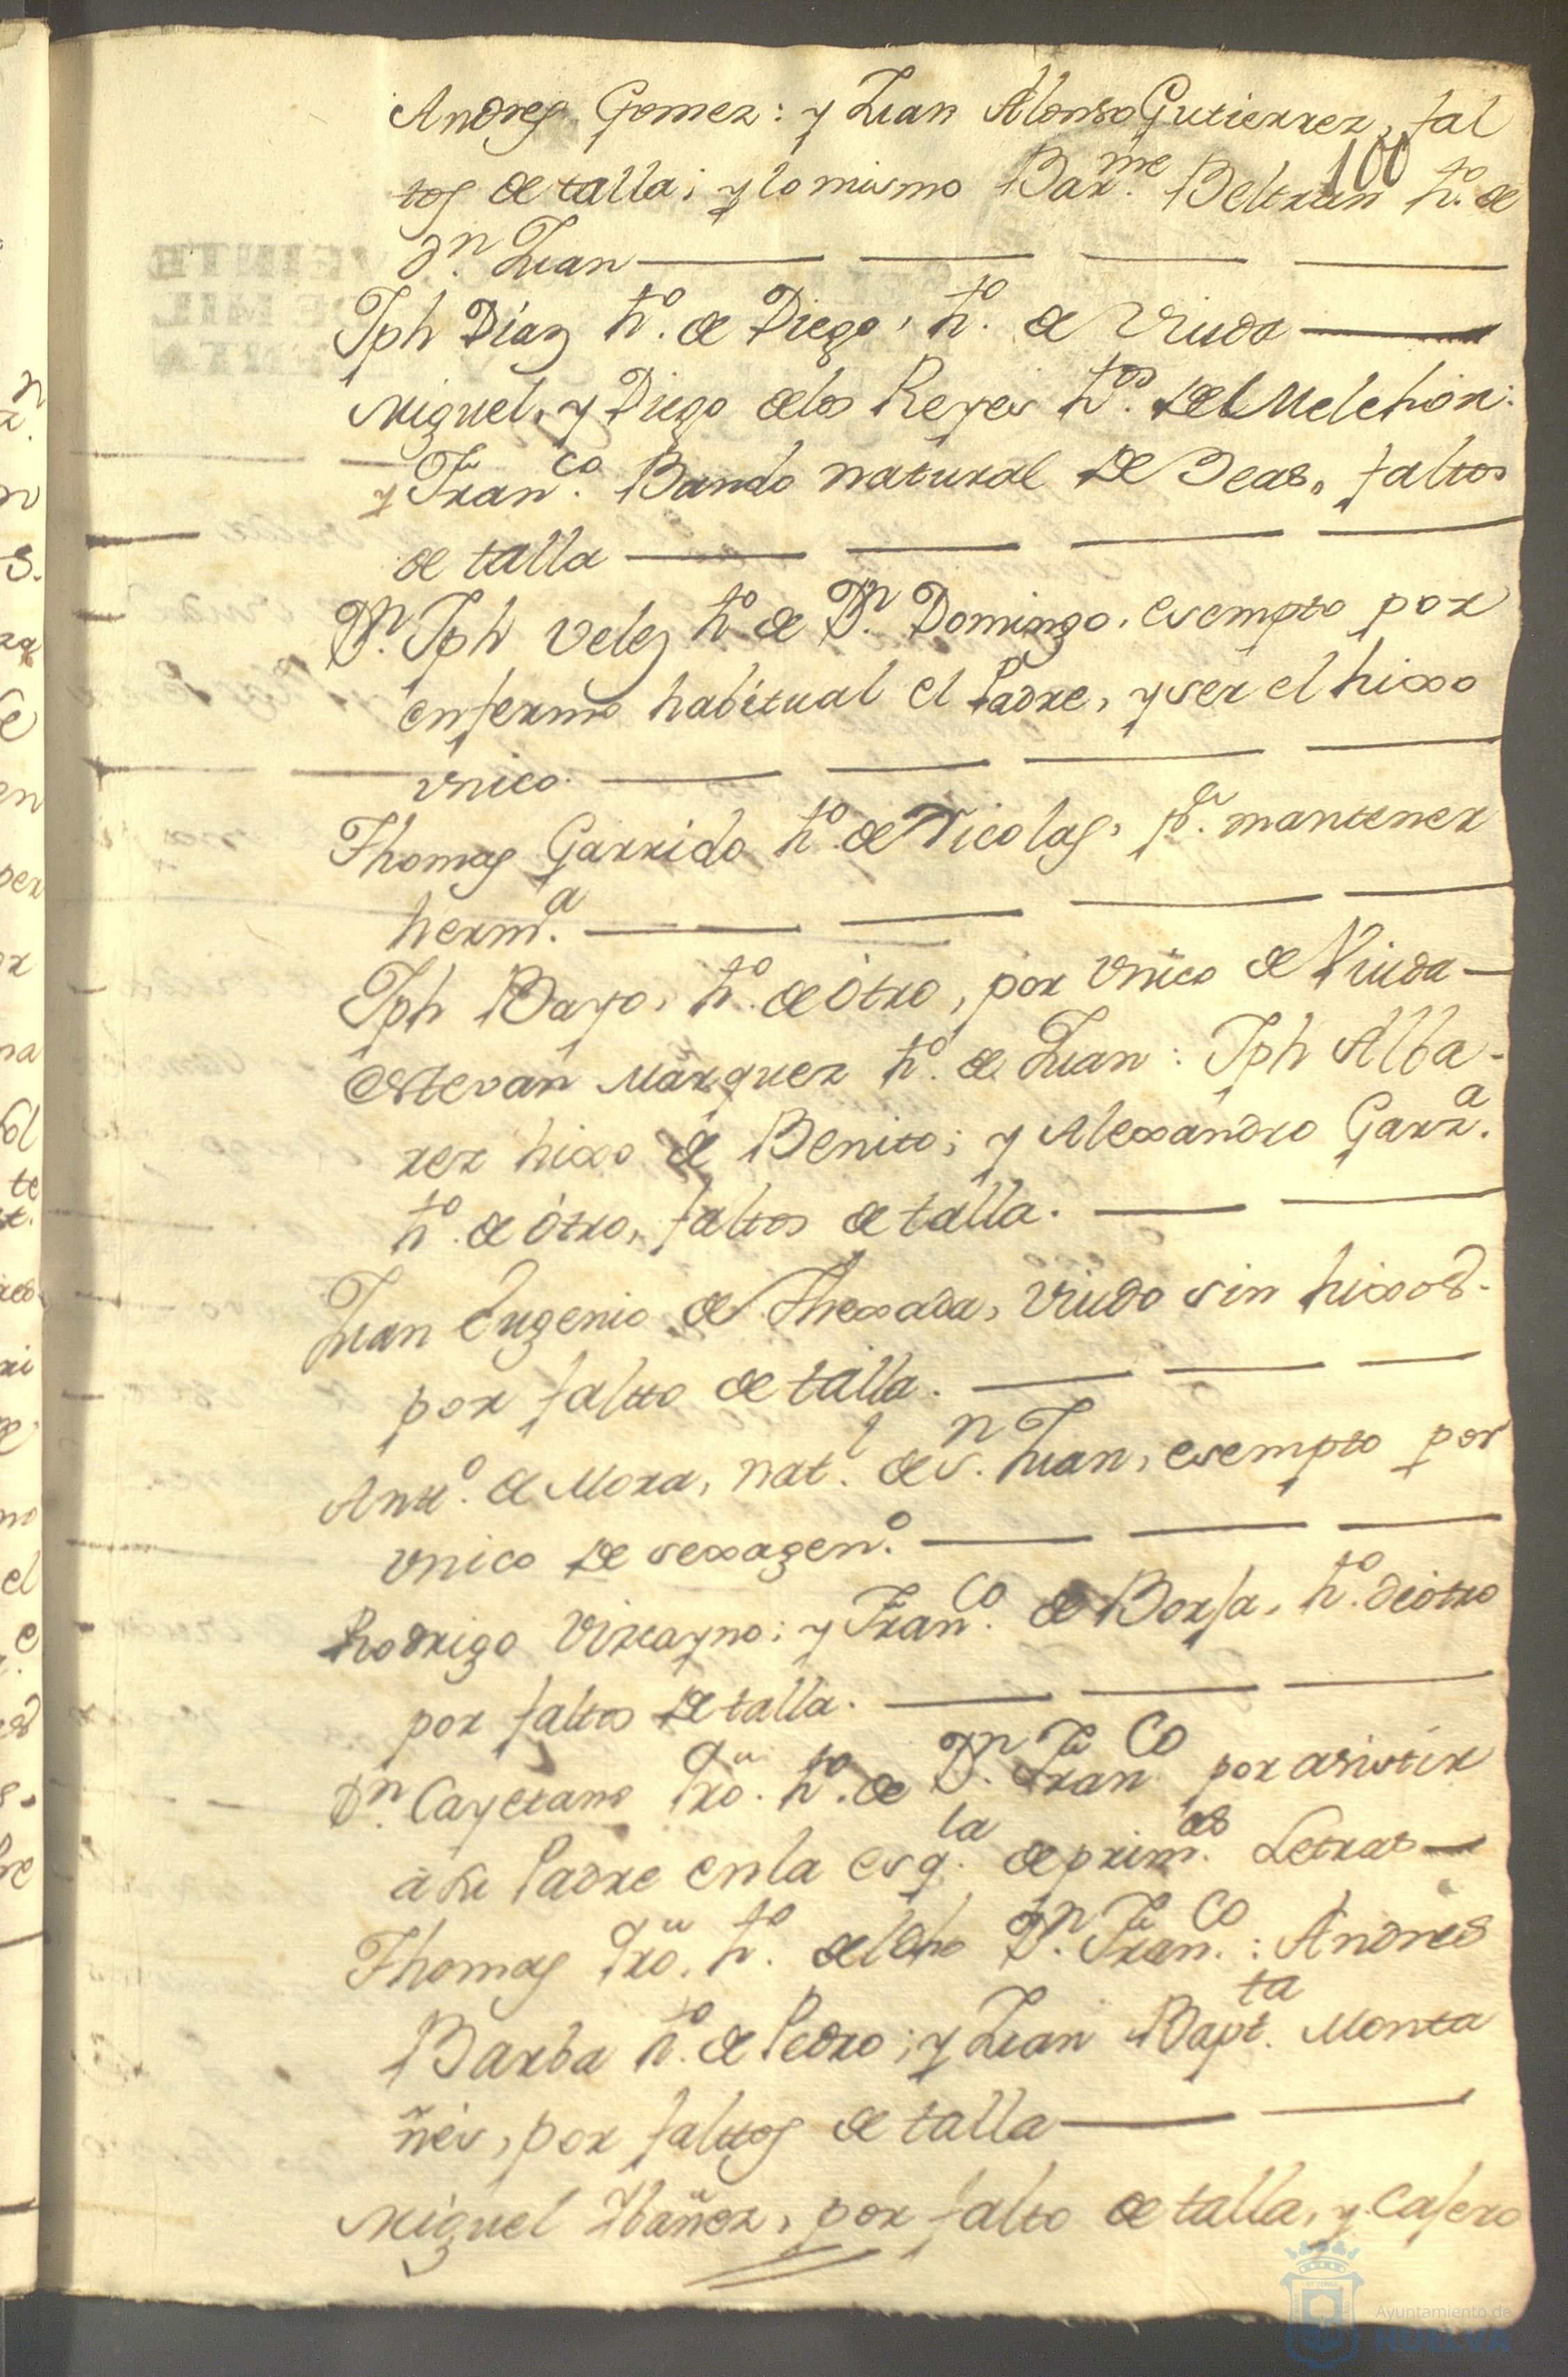 Andres Gomez: y Juan Alonso Gutierrez, fal
100
tos de talla; y lo mismo Bar.me Beltran h.to de
D.n Juan
Jph Díaz h.to de Diego, h.to de Viuda
Miguel, y Diego de los Reyes h.tos de Melchor:
y Fran.co Bando natural de Beas, faltos
de talla
D.n Jph Velez h.to de D.n Domingo, esempto por
enfermo habitual el Padre, y ser el hixo
vnico.
Thomas Garrido h.to de Nicolas, p.a mantener
herm.a
Jph Bayo, h.to de otro, por vnico de Viuda
Estevan Márquez h.to de Juan: Jph Alba-
rez hixo de Benito; y Alexandro Garz.a
h.to de otro, faltos de talla.
Juan Eugenio de Thexada, viudo sin hixos.
por faltto de talla.
Ant.o de Mora, nat.l de S.n Juan, esempto por
vnico de sexagen.o
Rodrigo Vizcayno; y Fran.co de Borja, h.to de otro
por faltos de talla.
D.n Cayetano h.to de D.n Fran.co por asistir
à su Padre en la esq.la de prim.as Letras
Thomas h.to del dho D.n Fran.co: Andres
Barba h.to de Pedro; y Juan Bapt.ta Monta
ñés, por falttos de talla
Miguel Ybañez, por falto de talla, y Casero
Ayuntamiento de
HUELVA